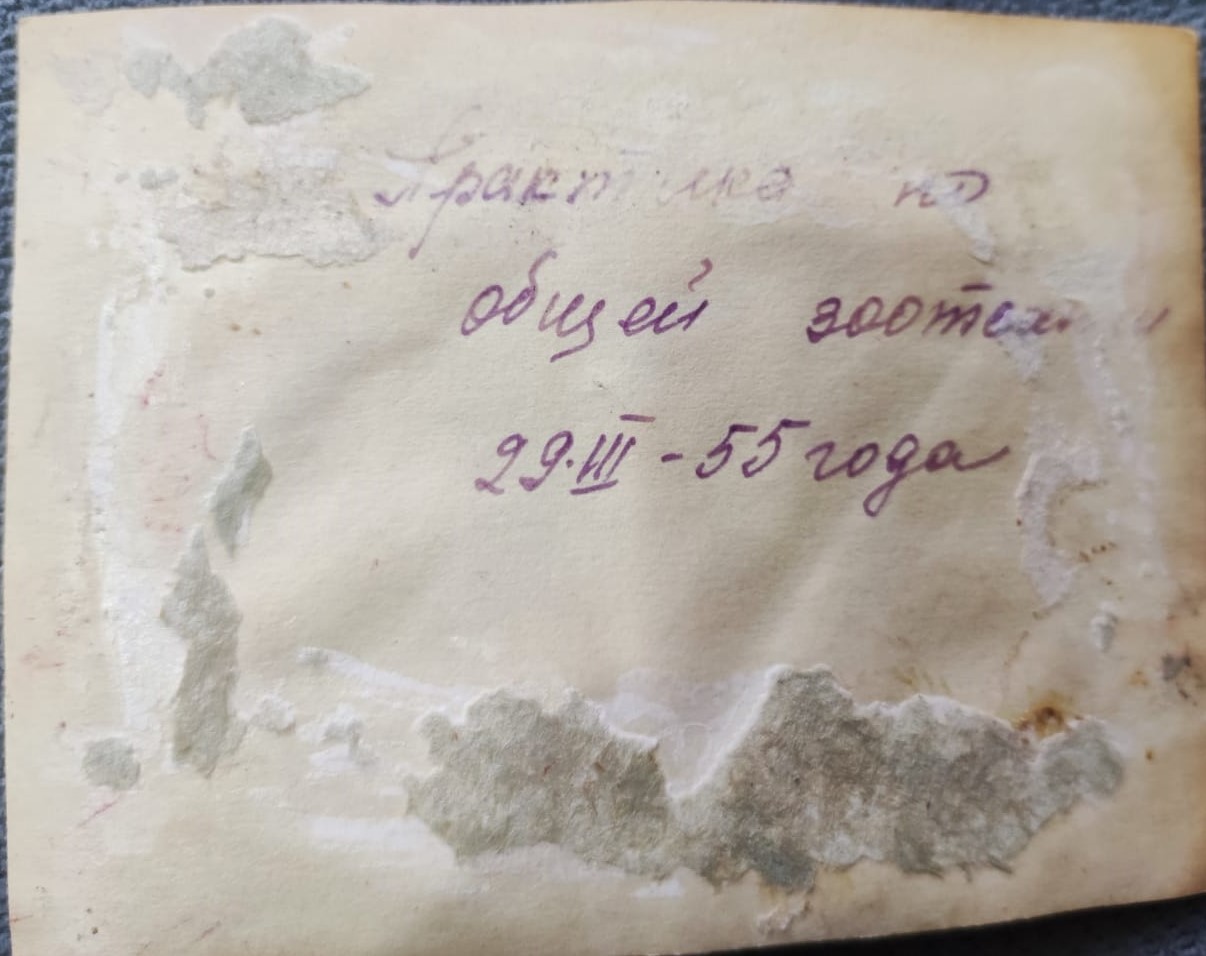 Практика по
общей зоотехнии
29.III - 55 года